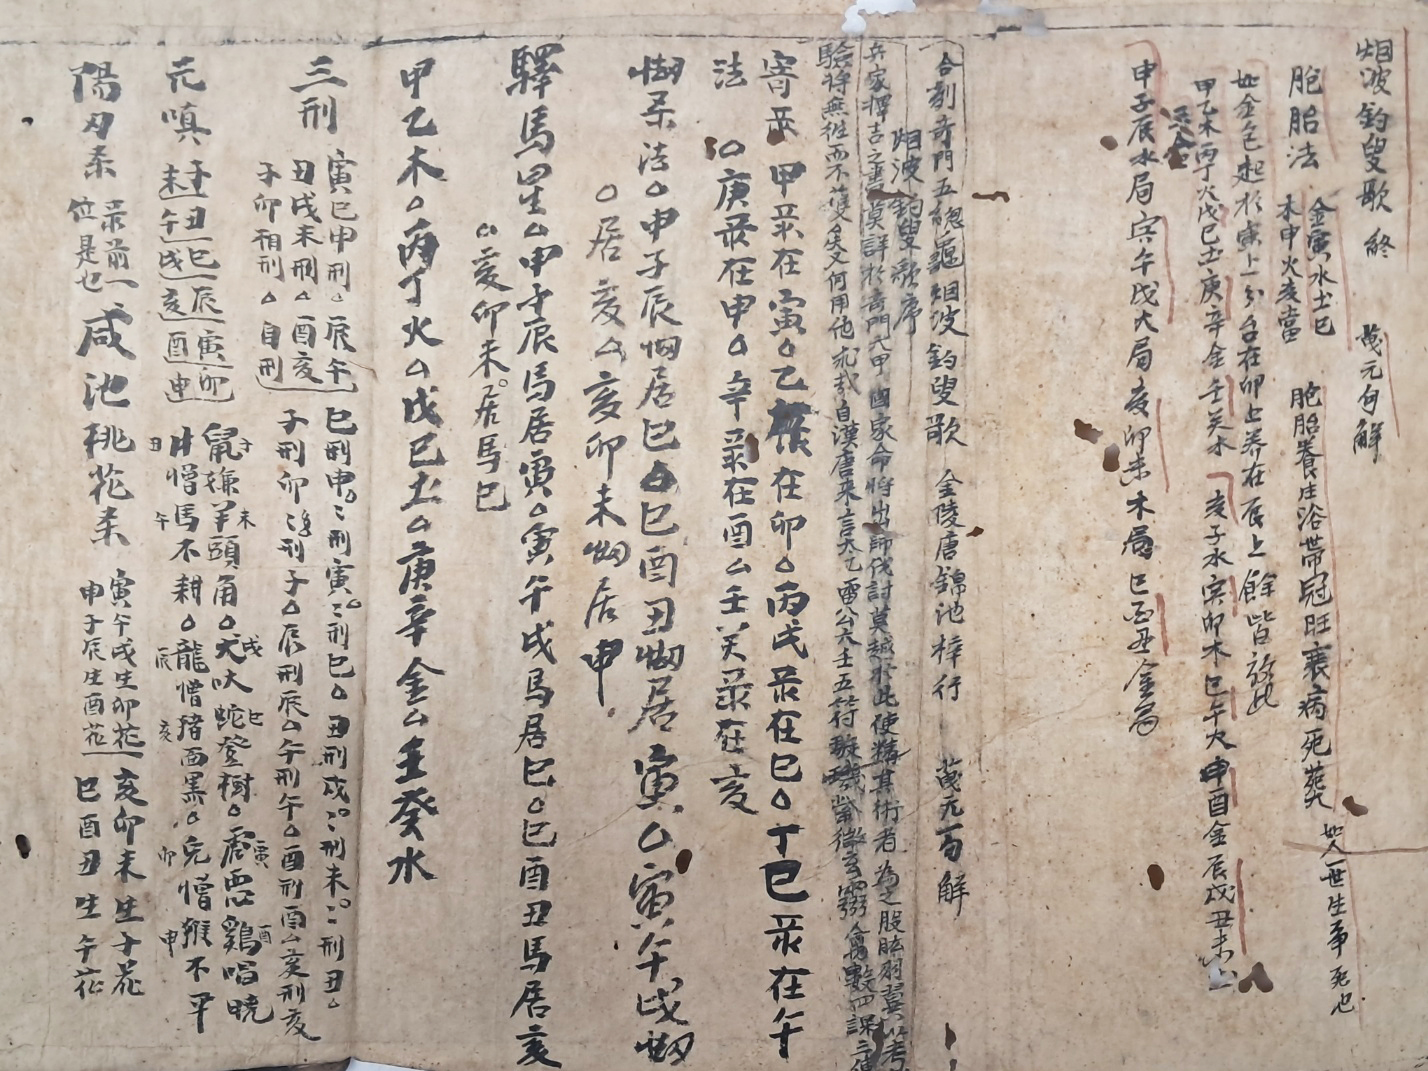 烟波釣叟歌 終　茂元句解
胞胎法
金寅水土巳
木申火亥當
胞胎養生浴帶冠旺衰病死葬
如人一世生爭死也
如金包起於寅上分台在卯上养在辰上餘皆放此
甲乙木丙丁火戊巳土庚辛金壬癸水　亥子水寅卯木巳午火申酉金辰戌丑未土
三合
申子辰水局寅午戌火局亥卯未木局巳酉丑金局
合刻奇門五總龜烟波釣叟歌　金陵唐錦池梓行　茂元句解
烟波釣叟歌序
兵家擇吉之書莫詳於奇門六甲 國家命將出師伐討莫越於此使精其術者為之股肱羽翼以考
驗將無徃而不獲矣又何用他　哉自漢唐來言太乙雷公六壬五符璇璣　禽數四課三傳
寄彔 甲彔在寅△乙彔在卯△丙戊彔在巳△丁巳彔在午
法 △庚彔在申△辛彔在酉△壬癸彔在亥
刼杀法△申子辰刼居巳△巳酉丑刼居寅△寅午戌刼
△居亥△亥卯未刼居申
驛馬星△申子辰馬居寅△寅午戌馬居巳△巳酉丑馬居亥
△亥卯未居馬巳
甲乙木△丙丁火△戊巳土△庚辛金△壬癸水
三刑
寅巳申刑△辰午
丑戌未刑△酉亥
子卯相刑△自刑
巳刑申ミ刑寅ミ刑巳△丑刑戌ミ刑未ミ刑丑△
子刑卯ミ刑子△辰刑辰△午刑午△酉刑酉△亥刑亥
元嗔
子丑巳辰寅卯
未午戌亥酉申
鼠嫌羊頭角△犬吠蛇登樹△虎惡鷄唱曉
牛憎馬不耕△龍憎猪面黑△兔憎猴不平
陽刃杀
彔前一
位是也
咸池桃花杀
寅午戌生卯花
申子辰生酉花
亥卯未生子花
巳酉丑生午花